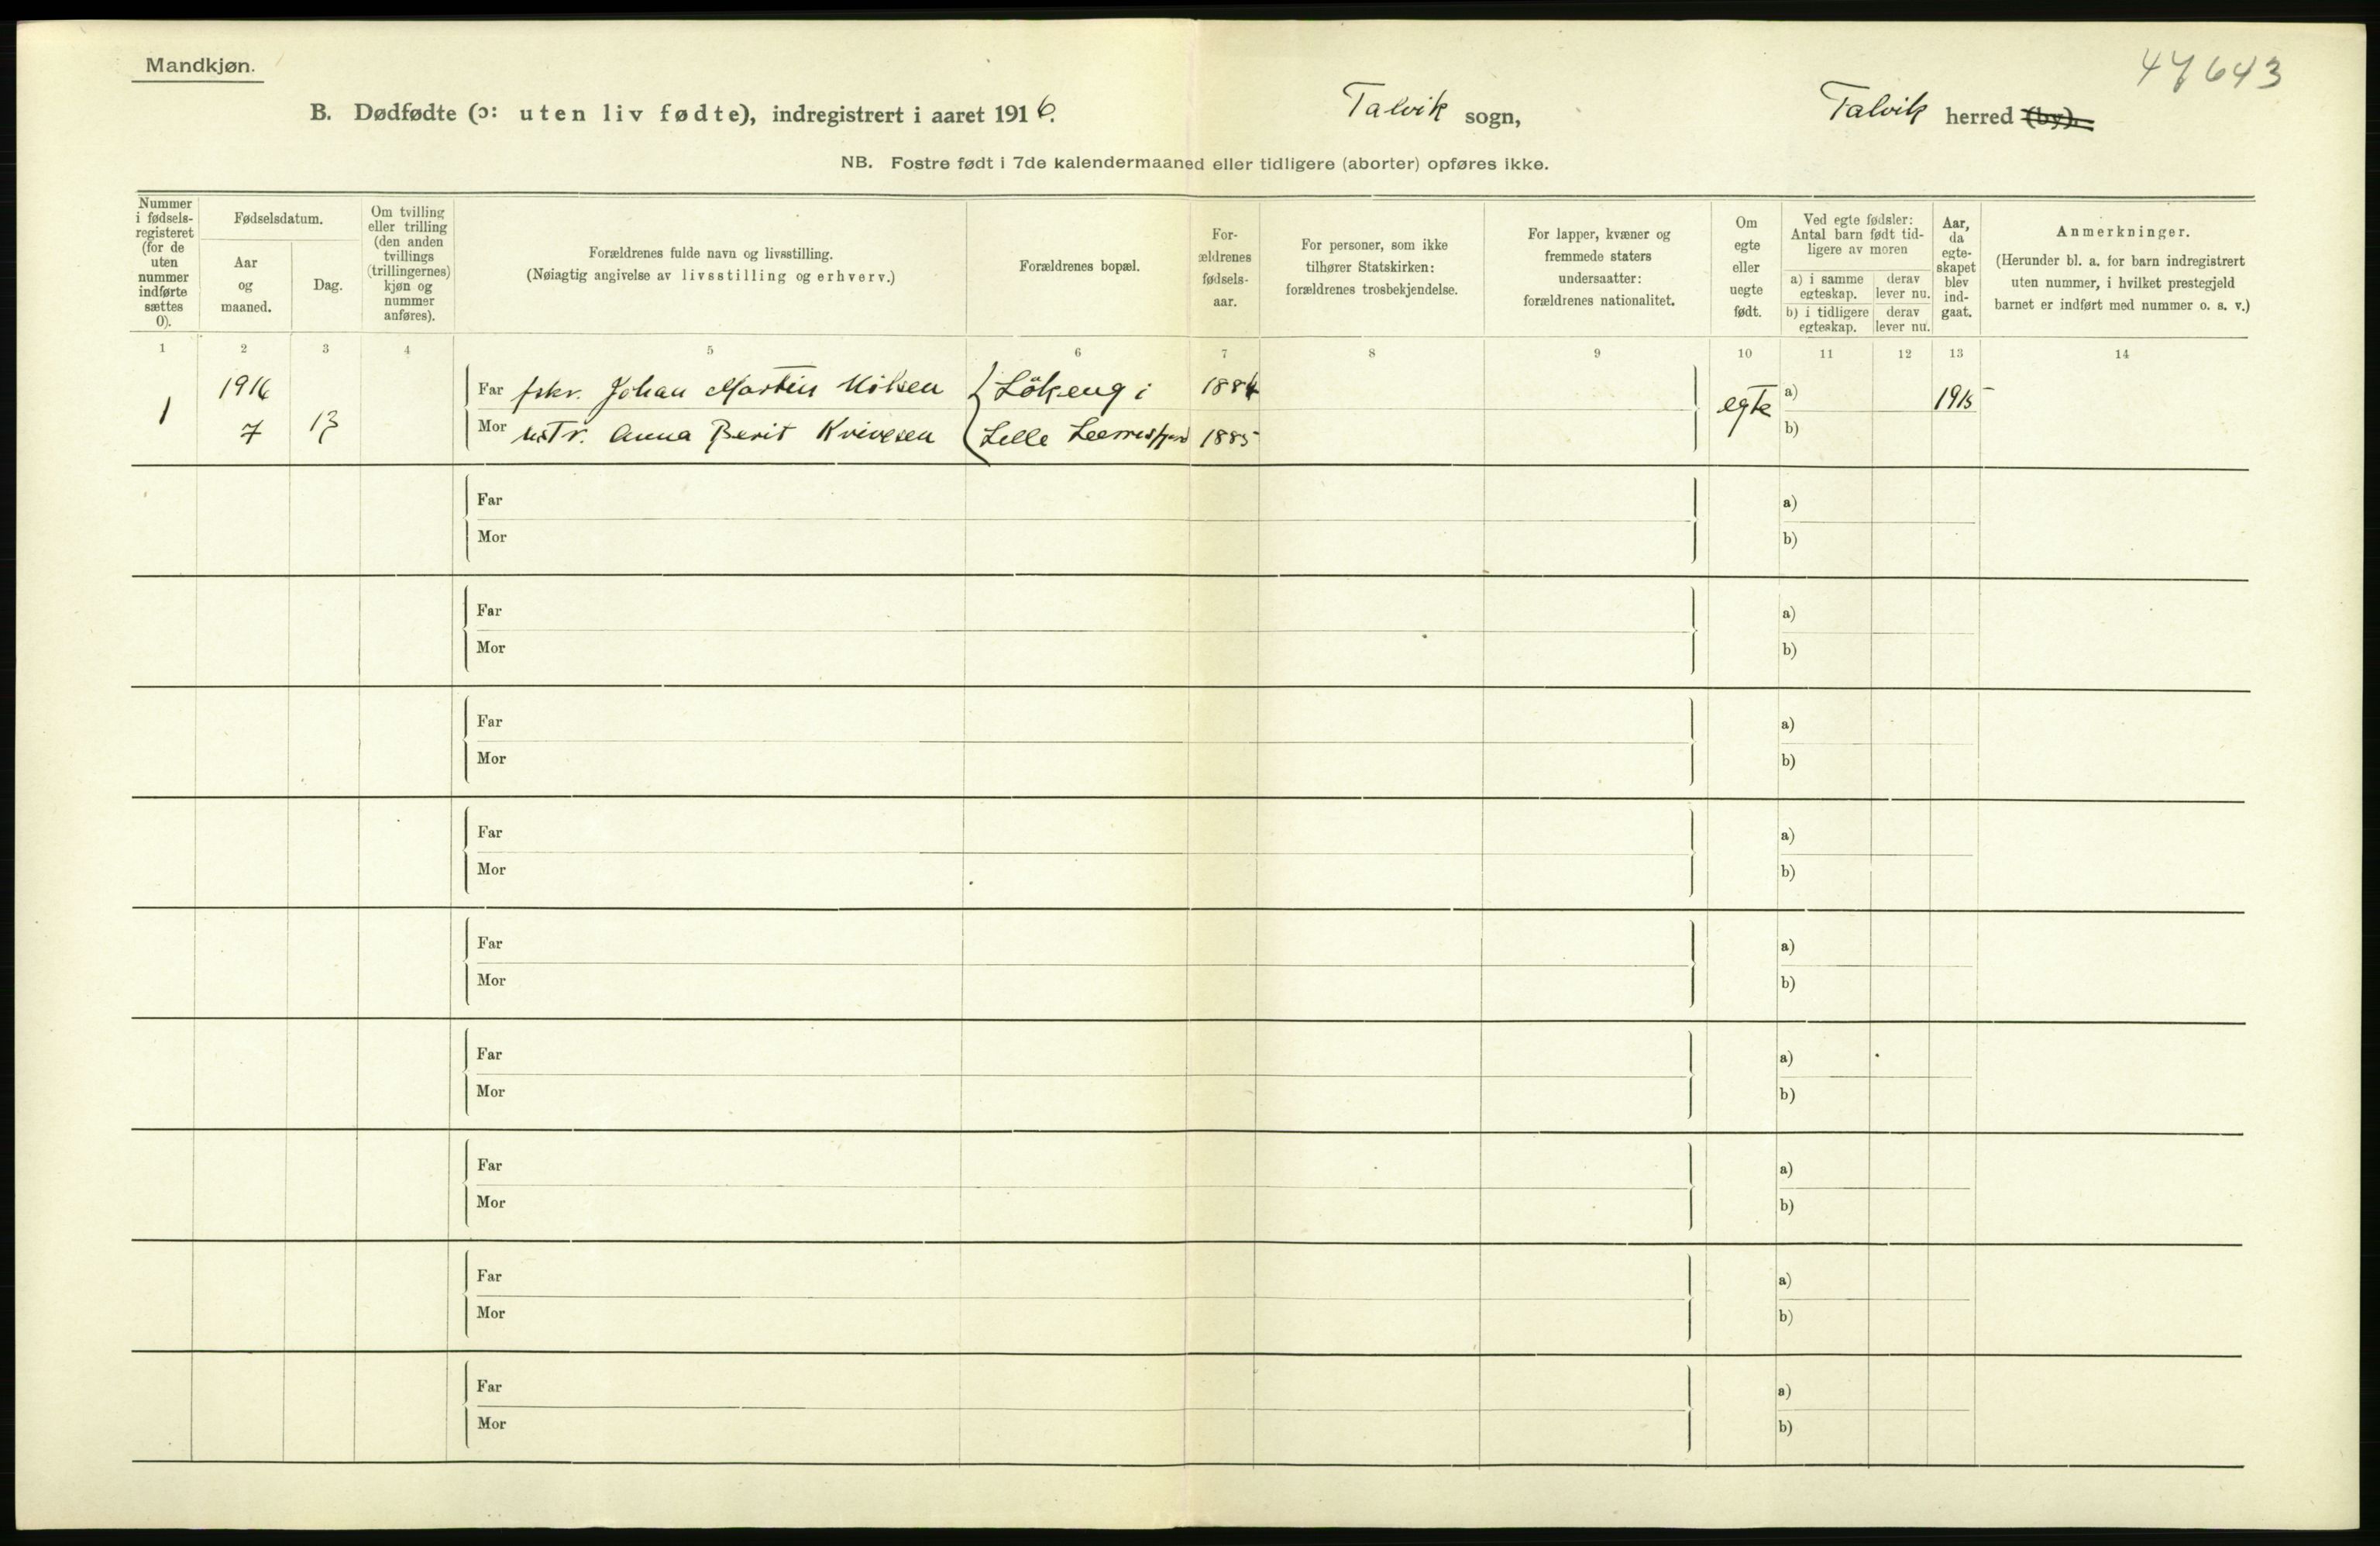 Mandkjøn.
47643
B. Dødfødte (ɔ: uten liv fødte), indregistrert i aaret 1916.
Talvik sogn,
Talvik herred (by).
NB. Fostre født i 7de kalendermaaned eller tidligere (aborter) opføres ikke.
Nummer
i fødsels-
registeret
(for de
uten
nummer
indførte
sættes
0).
Fødselsdatum.
Aar
og
maaned.
Dag.
Om tvilling
eller trilling
(den anden
tvillings
(trillingernes)
kjøn og
nummer
anføres).
Forældrenes fulde navn og livsstilling.
(Nøiagtig angivelse av livsstilling og erhverv.)
Forældrenes bopæl.
For-
ældrenes
fødsels-
aar.
For personer, som ikke
tilhører Statskirken:
forældrenes trosbekjendelse.
For lapper, kvæner og
fremmede staters
undersaatter:
forældrenes nationalitet.
Om
egte
eller
uegte
født.
Ved egte fødsler:
Antal barn født tid-
ligere av moren
a) i samme
egteskap.
derav
lever nu.
b) i tidligere
egteskap.
derav
lever nu.
Aar,
da
egte-
skapet
blev
ind-
gaat.
Anmerkninger.
(Herunder bl. a. for barn indregistrert
uten nummer, i hvilket prestegjeld
barnet er indført med nummer o. s. v.)
1 2 3 4 5 6 7 8 9 10 11 12 13 14
1916
Far fskr. Johan Martin Nilsen
Lökeng i
1884
egte
a)
1915
1
7
13
Mor Anna Berit
Lille
1885
b)
Far
a)
Mor
b)
Far
a)
Mor
b)
Far
a)
Mor
b)
Far
a)
Mor
b)
Far
a)
Mor
b)
Far
a)
Mor
b)
Far
a)
Mor
b)
Far
a)
Mor
b)
Far
a)
Mor
b)